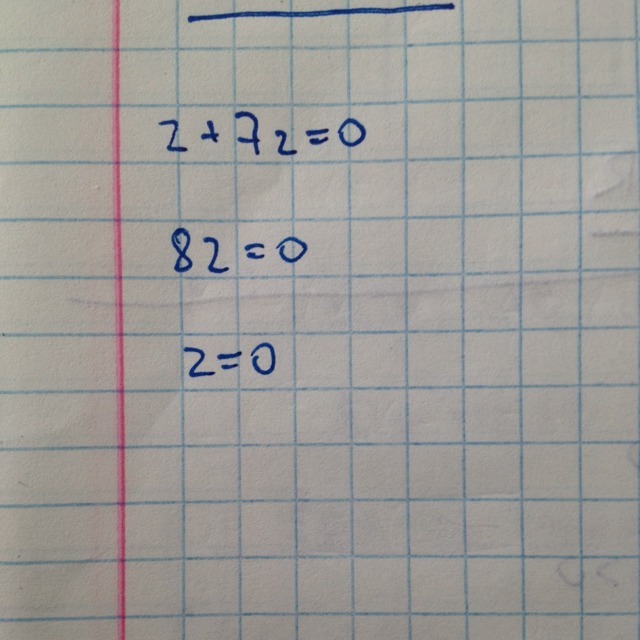 z+7z=0
8z=0
z=0